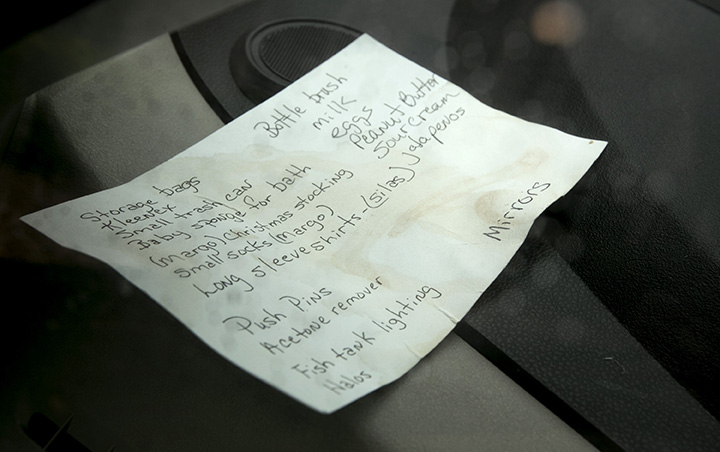 Bottle brush
milk
eggs
Peanut Butter
Sour cream
Jalapenos
Storage bags
Kleenex
Small trash can
Baby sponge for bath
(margo) Christmas stocking
Small socks (margo)
Long sleeve shirts - (silas)
Mirrors
Push Pins
Acetone remover
Fish tank lighting
Halos